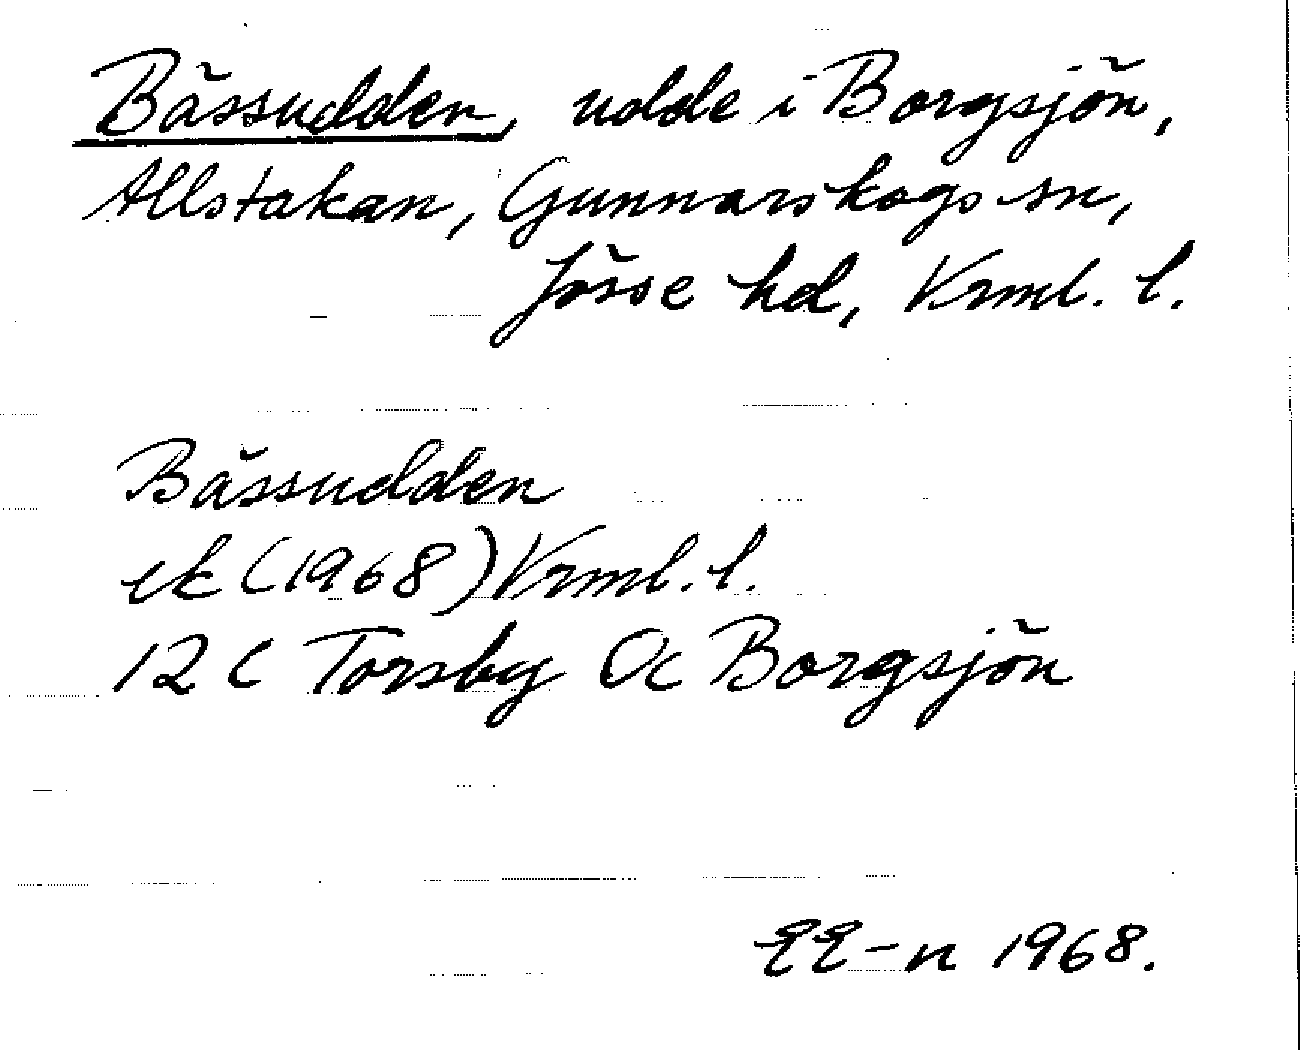 Båssudden, udde i Borgsjön,
Allstakan, Gunnarskogs sn,
Jösse hd, Vrml. l.
Båssudden
ek (1968) Vrml. l.
12 C Torsby 0c Borgsjön
EE-n 1968.